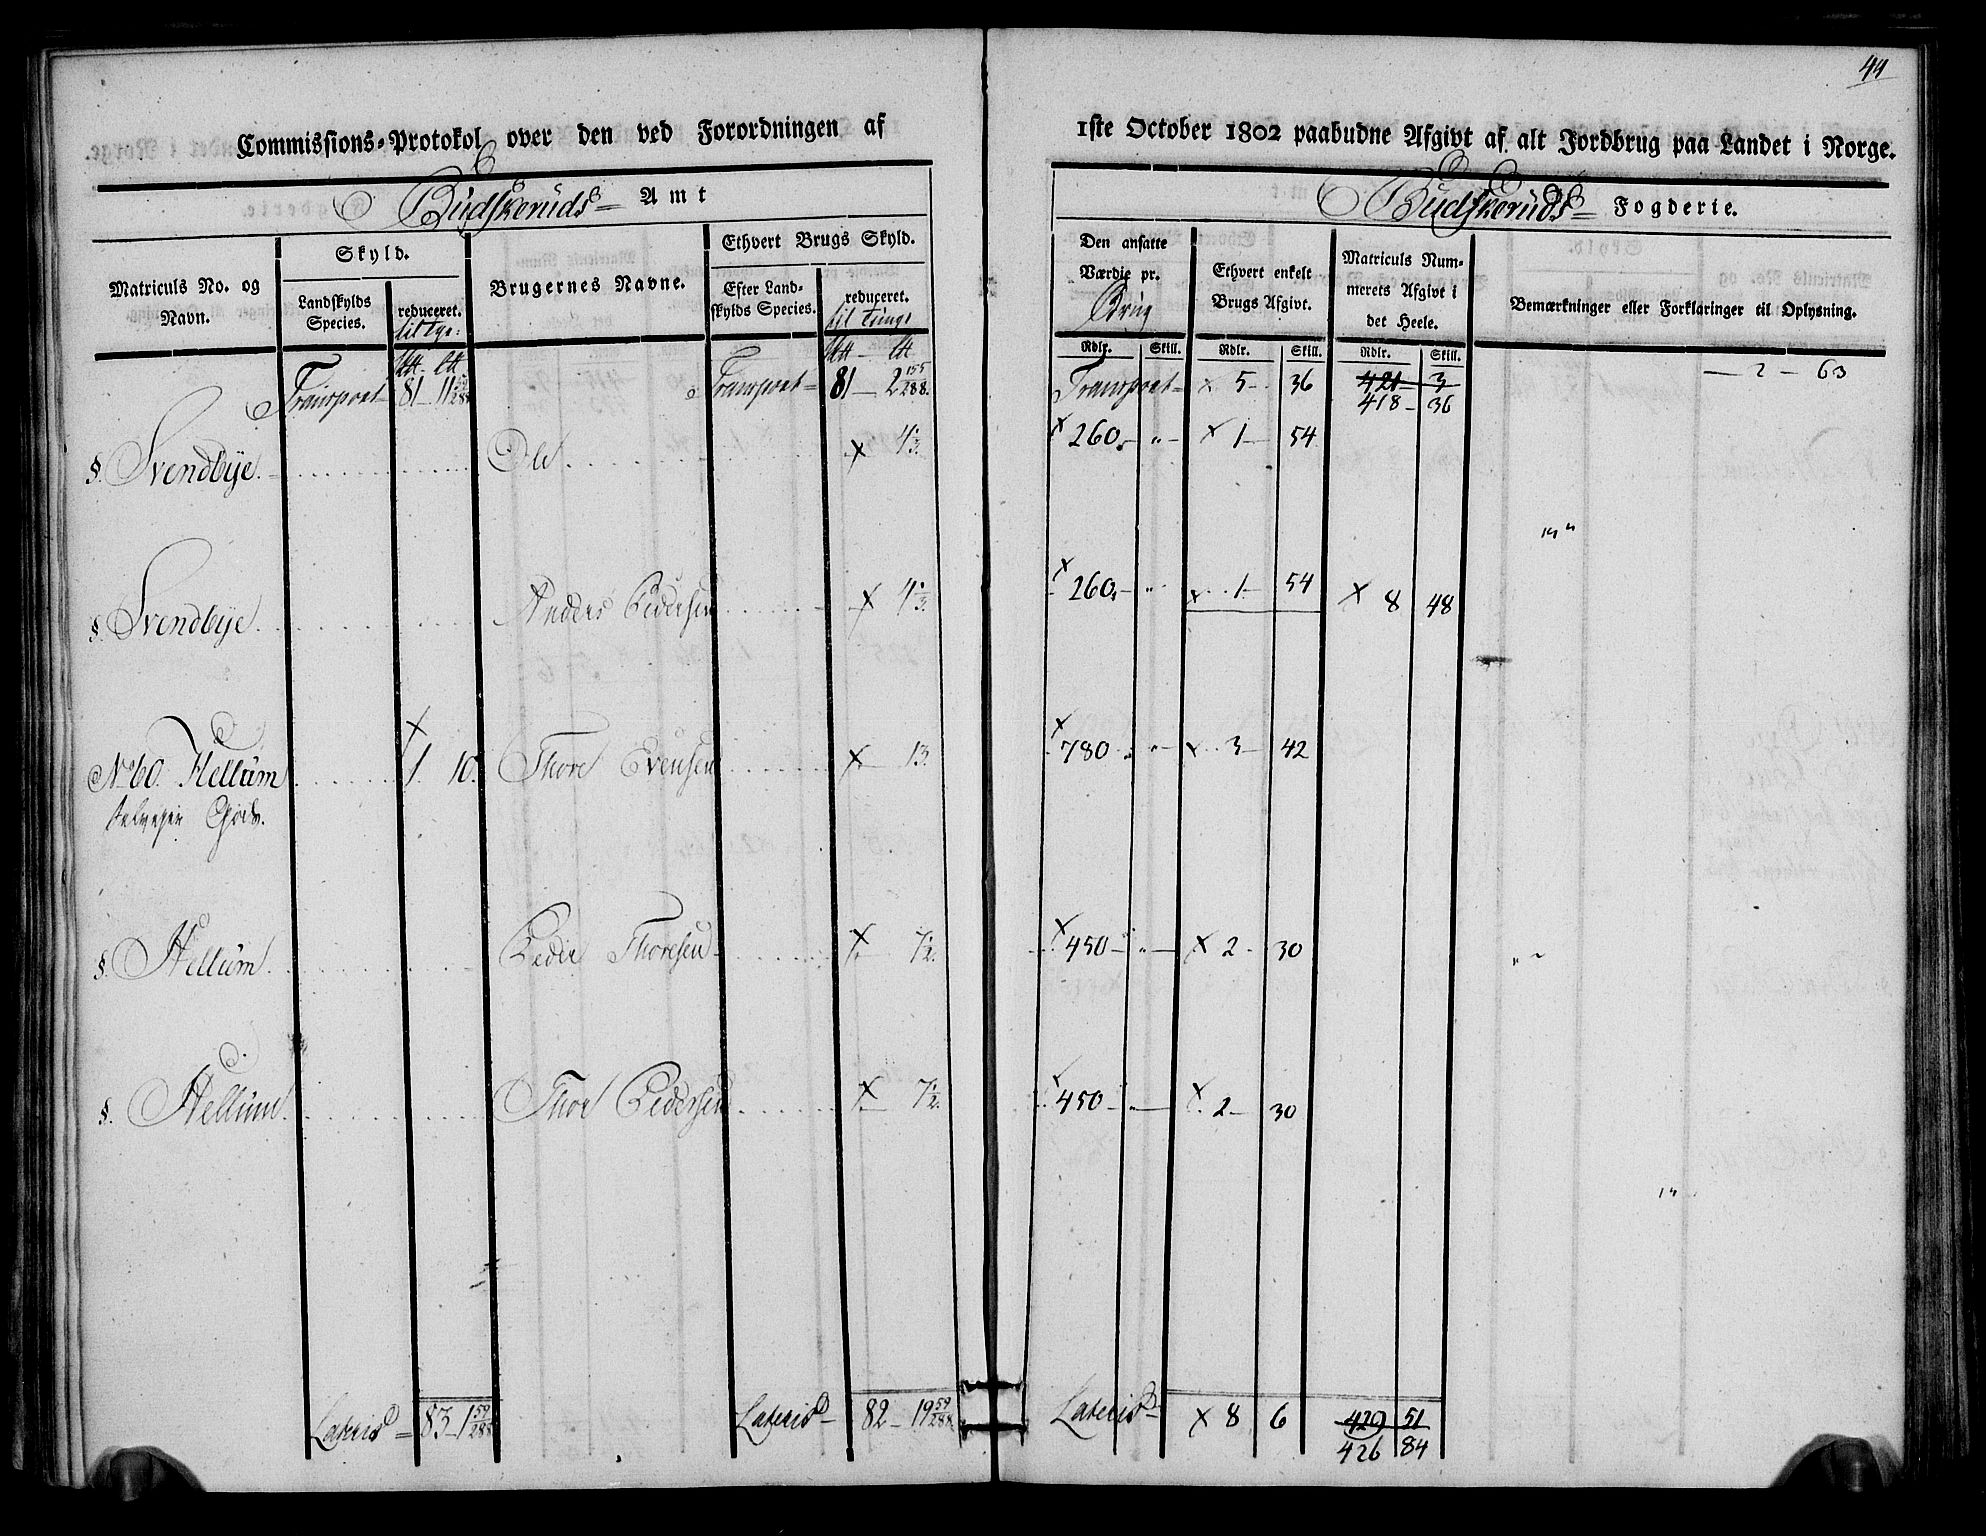 44
Commissions-Protokol over den ved Forordningen af 1ste October 1802 paabudne Afgivt af alt Jordbrug paa Landet i Norge.
Budskeruds Amt
Budskeruds Fogderie.
Matriculs No. og Navn.
Skyld.
Landskylds Species.
reduceret.
Brugernes Navne.
Ethvert Brugs Skyld.
Efter Landskylds Species.
reduceret. til Tunge
Den ansatte Værdie pr. Brug
Ethvert enkelt Brugs Afgivt.
Matriculs Nummerets Afgivt i det Heele.
Bemærkninger eller Forklaringer til Oplysning.
Rdlr. Skill. Rdlr. Skill. Rdlr. Skill.
Transport 81 11 59/288 Transport 81 2 155/288 Transport x 5 36 421 3 2 63
418 36
§. Svendbye Ole x 4 1/3. x 260 " x 1 54
§. Svendbye Anders Pedersen x 4 1/3. x 260 " x 1 54 x 8 48
No 60. Hellum x 1 10. Thore Evensen x 13. x 780 " x 3 42
Selveyer Gods.
§. Hellum Peder Thoresen x 7 1/2. x 450 " x 2 30
§. Hellum Thore Pedersen x 7 1/2. x 450 " x 2 30
Lateris 83 1 59/288 Lateris 82 19 59/288. Lateris x 8 6 429 51
426 84